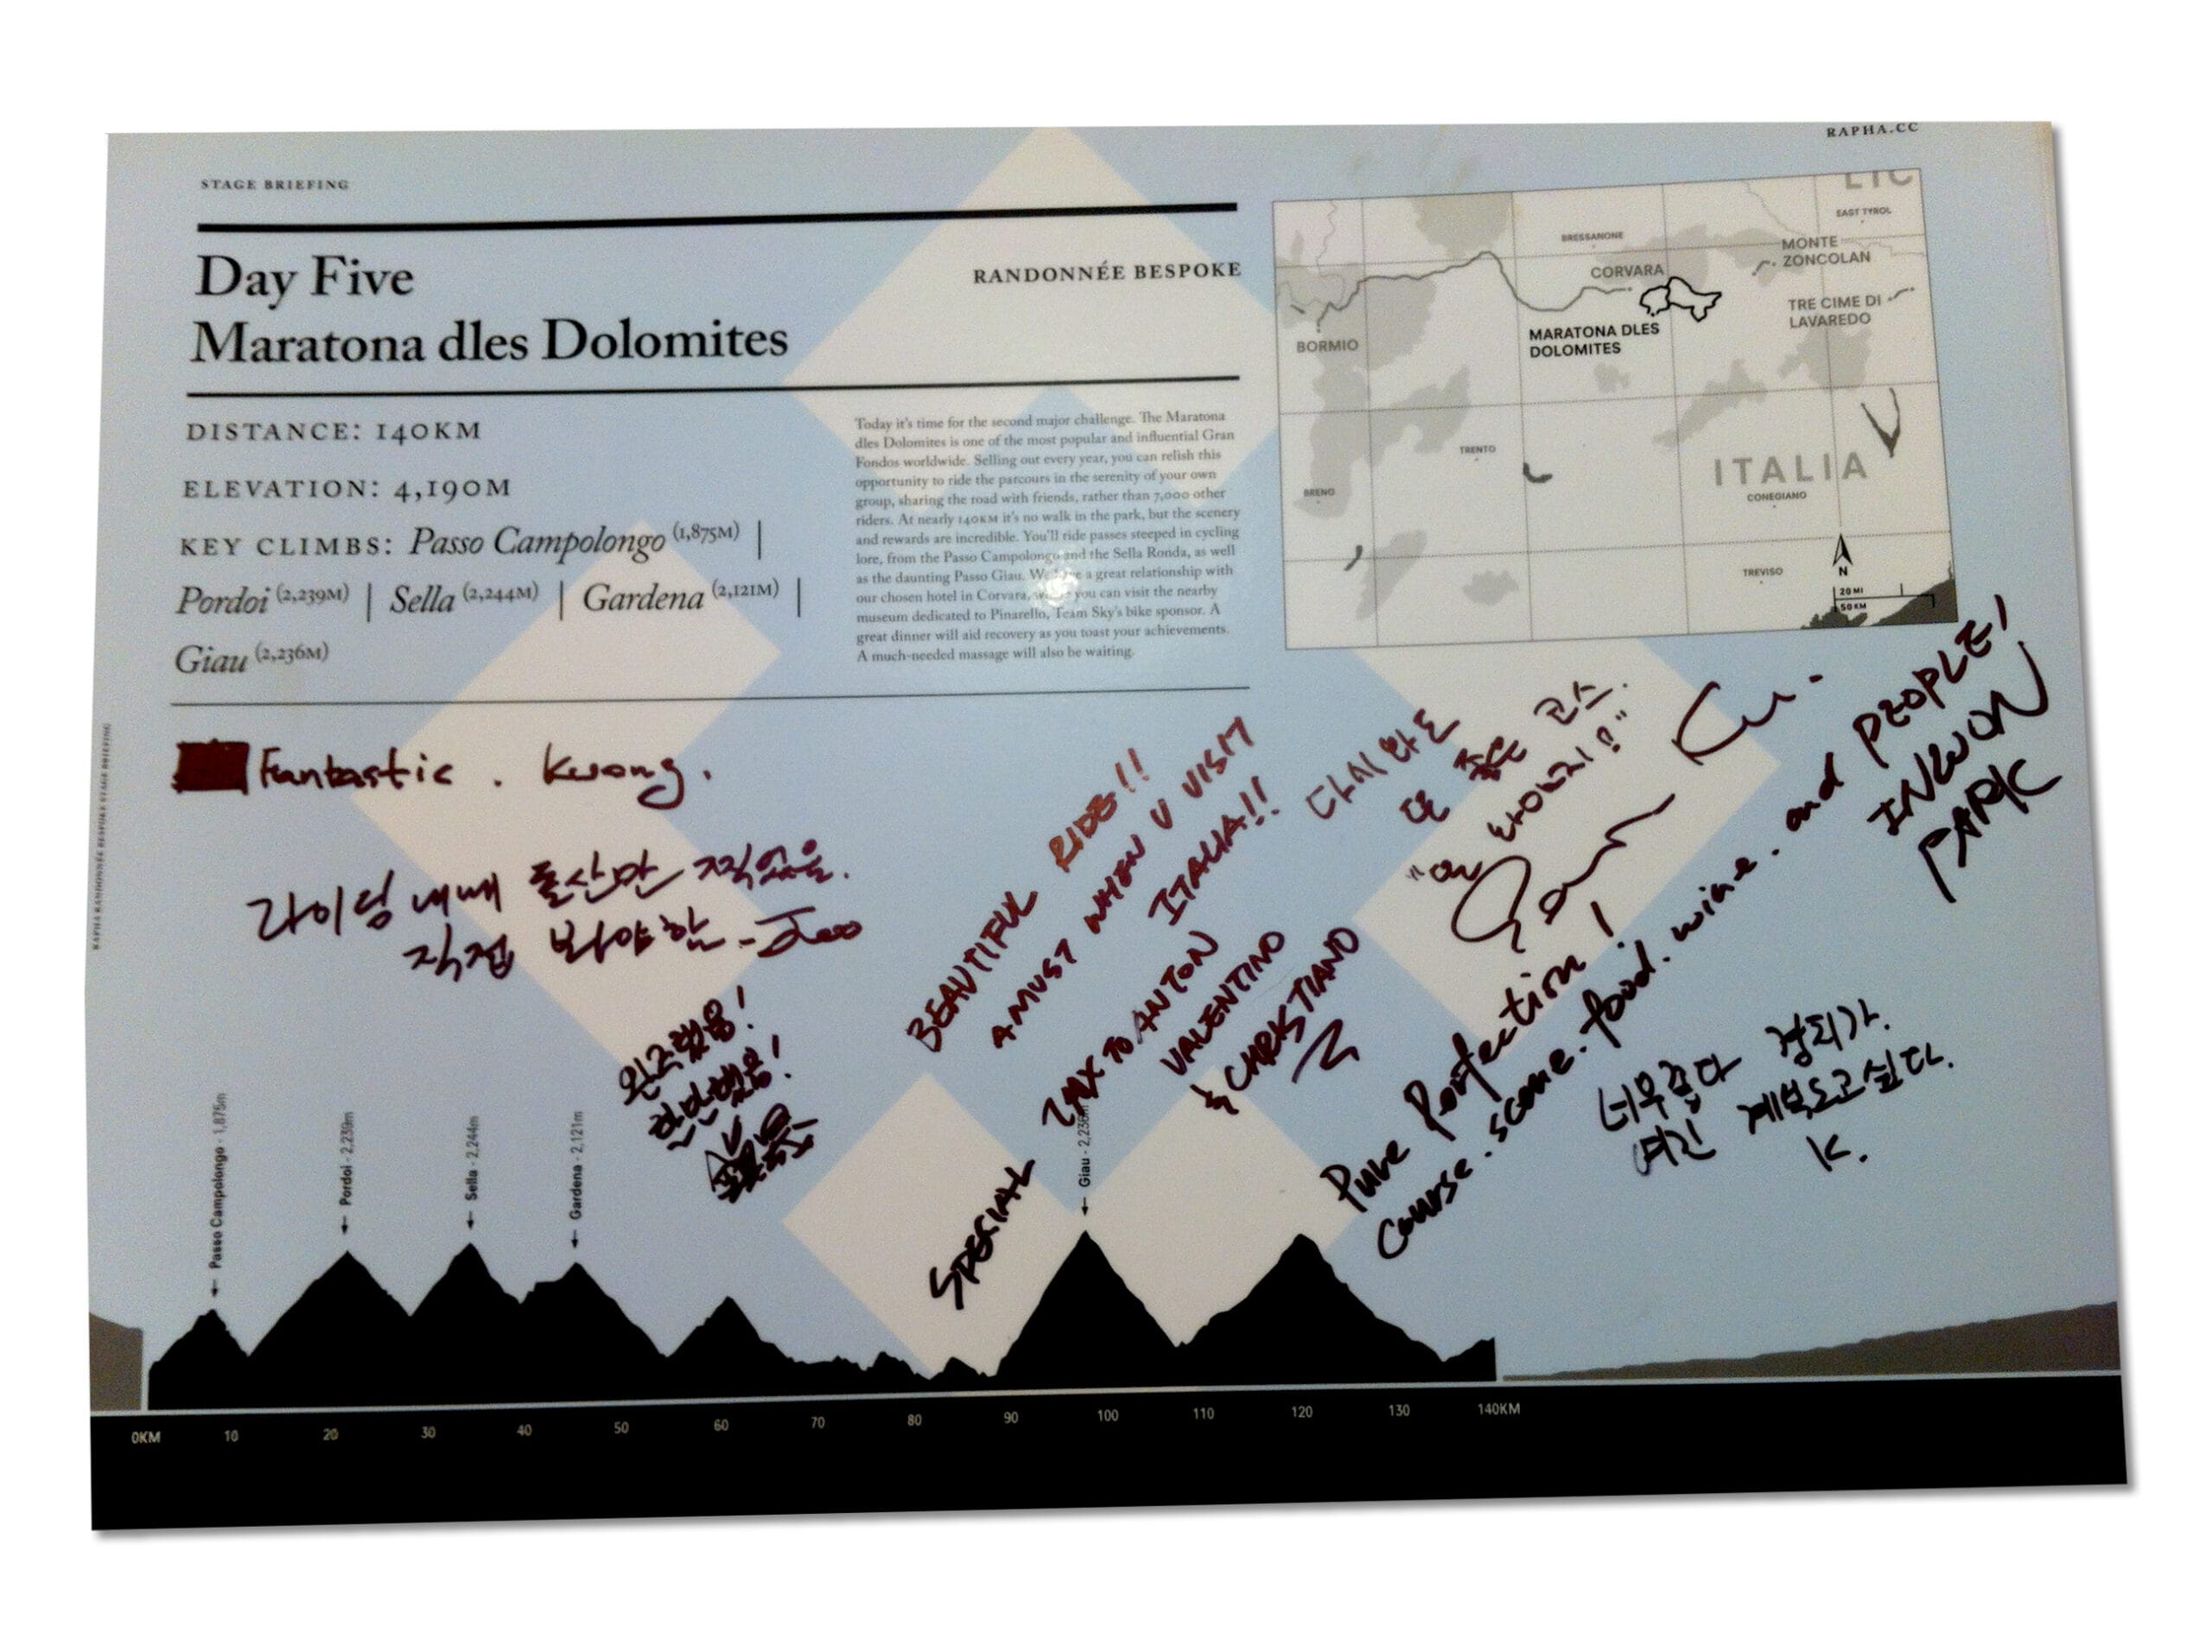 RAPHA.CC
STAGE BRIEFING
Day Five
Maratona dles Dolomites
RANDONNÉE BESPOKE
DISTANCE: 140KM
ELEVATION: 4,190M
KEY CLIMBS: Passo Campolongo (1,875M) |
Pordoi (2,239M) | Sella (2,244M) | Gardena (2,121M) |
Giau (2,236M)
Today it's time for the second major challenge. The Maratona
dles Dolomites is one of the most popular and influential Gran
Fondos worldwide. Selling out every year, you can relish this
opportunity to ride the parcours in the serenity of your own
group, sharing the road with friends, rather than 7,000 other
riders. At nearly 140KM it's no walk in the park, but the scenery
and rewards are incredible. You'll ride passes steeped in cycling
lore, from the Passo Campolongo and the Sella Ronda, as well
as the daunting Passo Giau. We have a great relationship with
our chosen hotel in Corvara, where you can visit the nearby
museum dedicated to Pinarello, Team Sky's bike sponsor. A
great dinner will aid recovery as you toast your achievements.
A much-needed massage will also be waiting.
EAST TYROL
BRESSANONE
MONTE
ZONCOLAN
CORVARA
TRE CIME DI
LAVAREDO
BORMIO
MARATONA DLES
DOLOMITES
TRENTO
ITALIA
BRENO
CONEGLIANO
TREVISO
N
20 MI
50 KM
RAPHA RANDONNÉE BESPOKE STAGE BRIEFING
Fantastic. Kwong.
라이딩 내내 돌산만 찍었음.
직접 봐야함 - Joo
완주했음!
BEAUTIFUL RIDE!!
A MUST WHEN U VISIT
ITALIA!!
SPECIAL TNX TO ANTON
VALENTINO
& CHRISTIANO
다시 와도
또 좋을 코스.
Pure Perfection!
Course. scene. food. wine. and PEOPLE!
INWON
PARK
너무좋다 경치가.
여긴 계속도고싶다.
K.
Passo Campolongo - 1,875m
Pordoi - 2,239m
Sella - 2,244m
Gardena - 2,121m
Giau - 2,236m
0KM 10 20 30 40 50 60 70 80 90 100 110 120 130 140KM